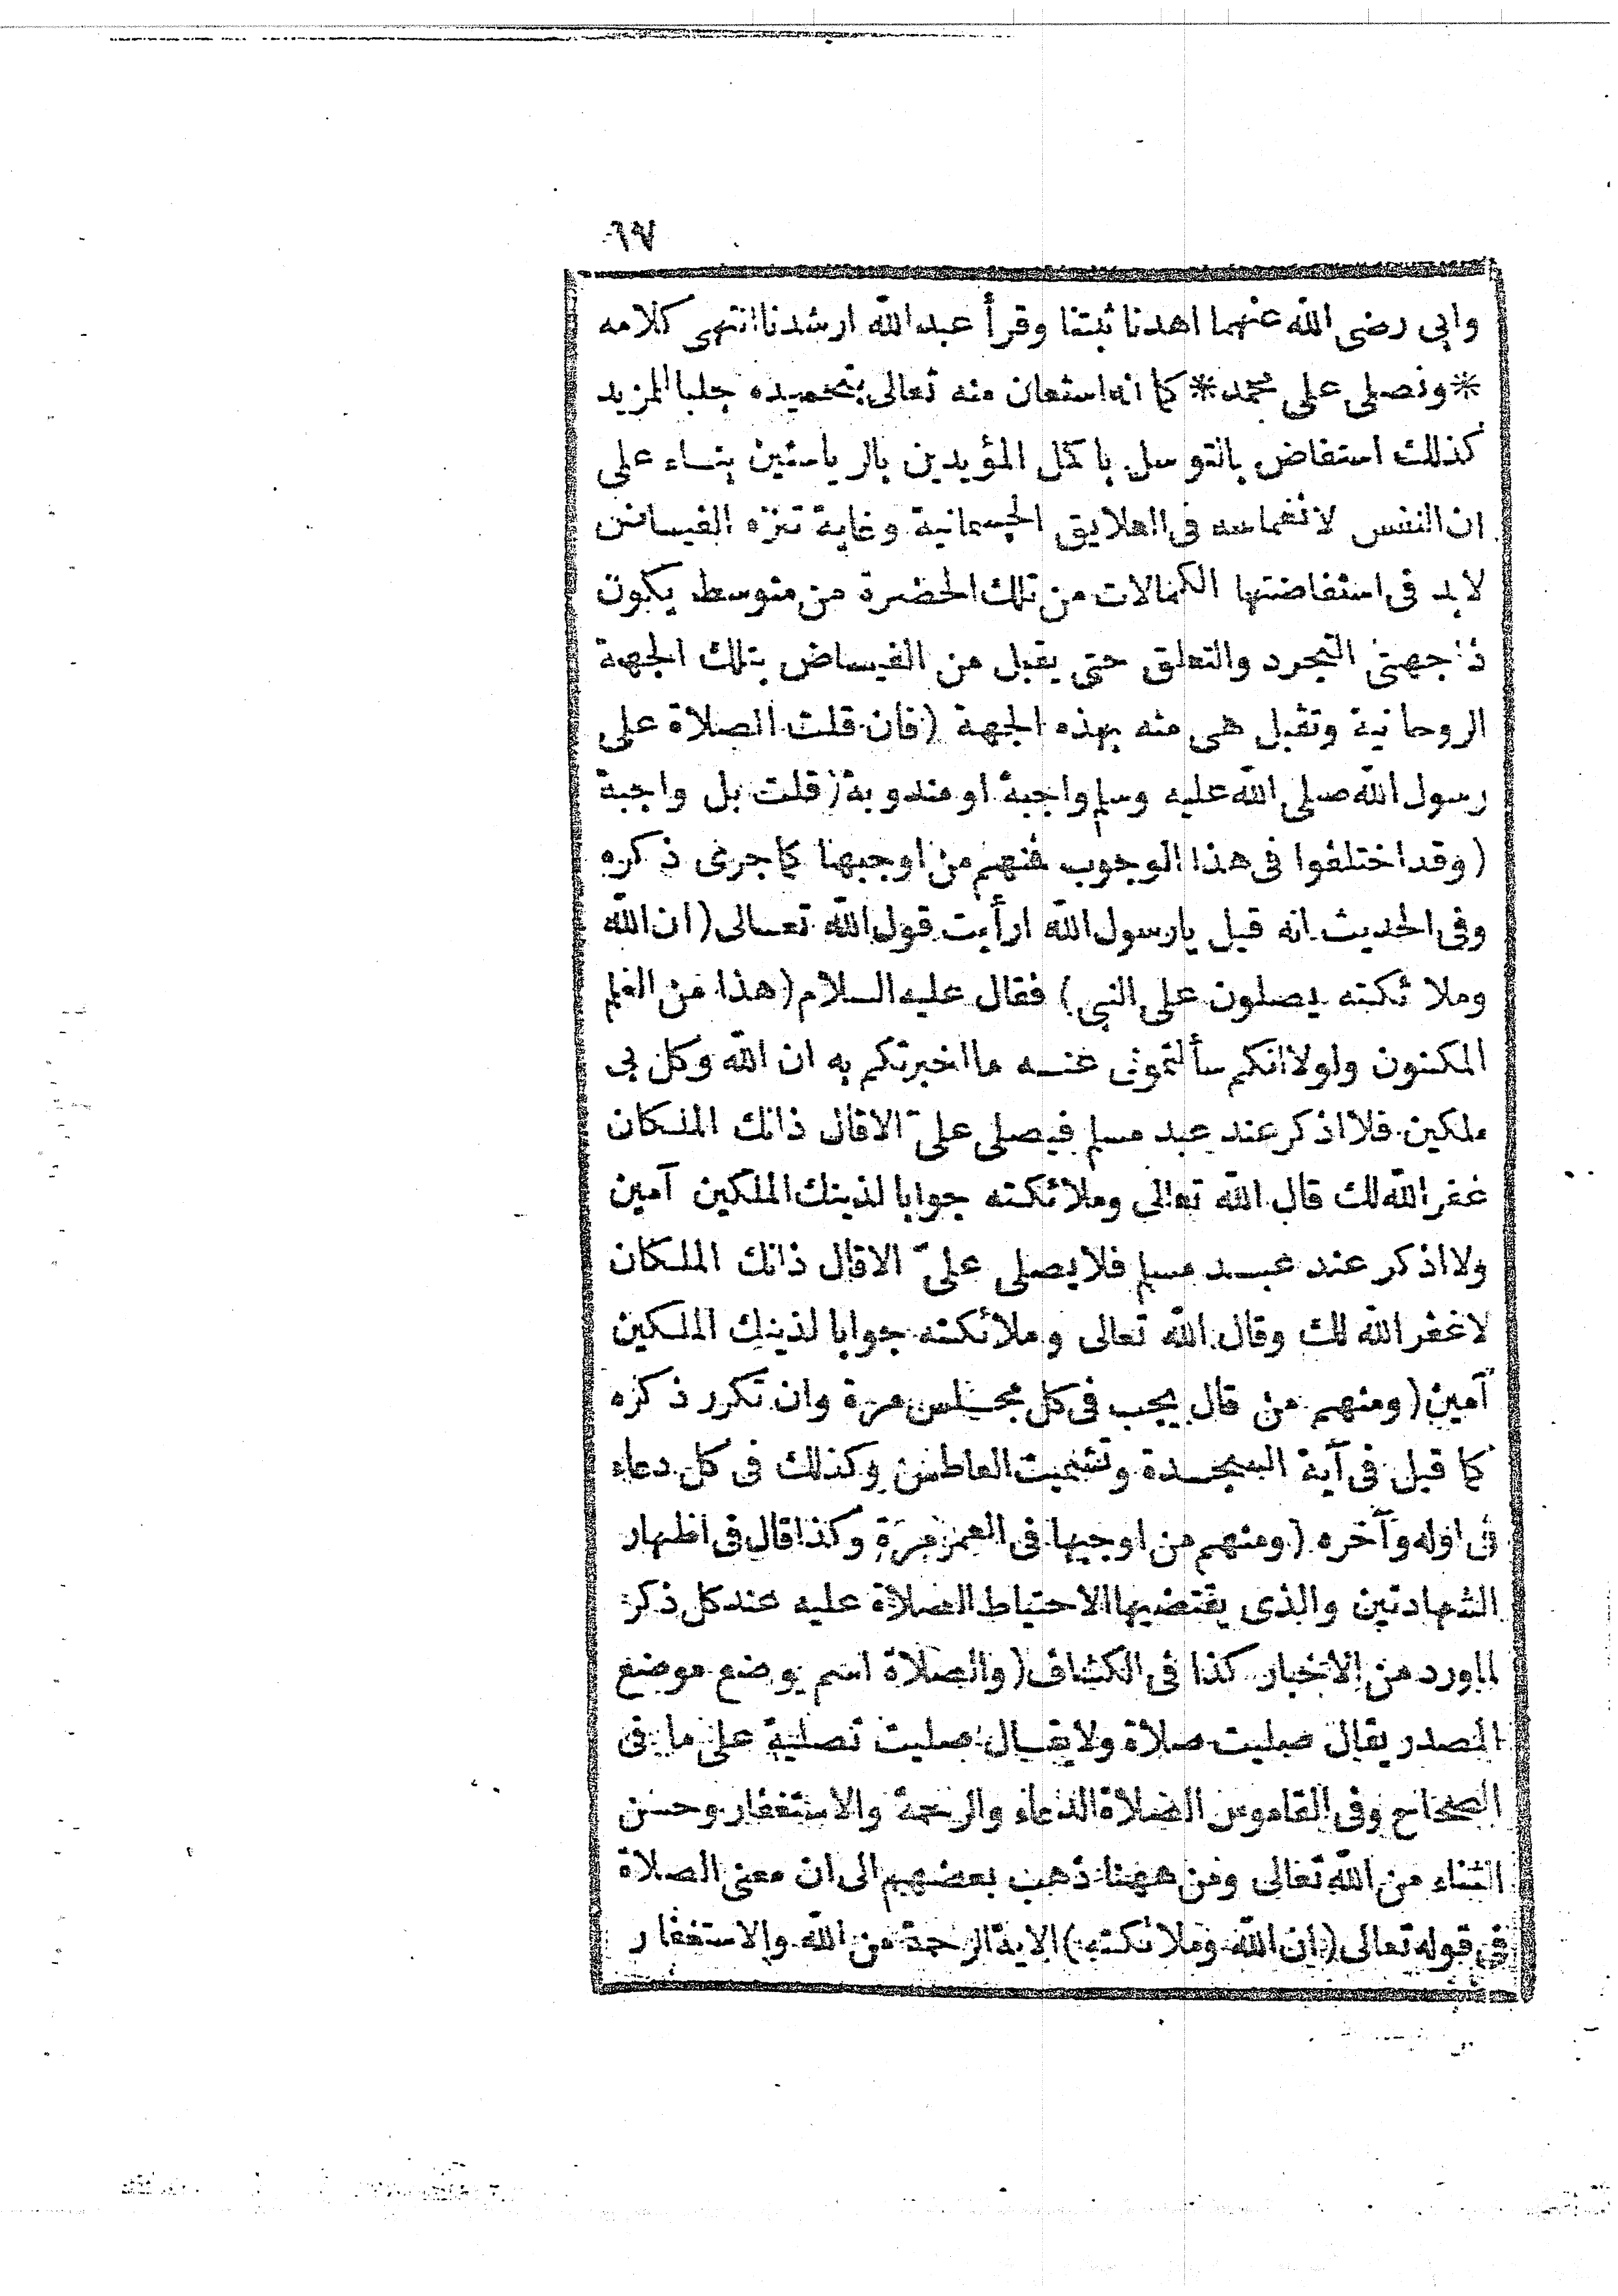 ٦٧
وابي رضى الله عنهما اهدنا ثبتنا وقرأ عبد الله ارشدنا انتهى كلامه
* ونصلى على محمد * كما انه استعان منه تعالى بتحميده جلبا لمزيد
كذلك استفاض بالتوسل با كمل المؤيدين بالرياستين بناء على
ان النفس لانغماسه فى العلايق الجسمانية وغاية تنزه الفيسا
لابد فى استفاضتها الكمالات من تلك الحضرة من متوسط يكون
ذا جهتى التجرد والتعلق حتى يقبل من الفيساض بتلك الجهة
الروحانية وتقبل هى منه بهذه الجهة (فان قلت الصلاة على
رسول الله صلى الله عليه وسلم واجبة او مندوبة (قلت بل واجبة
(وقد اختلفوا فى هذا الوجوب فمنهم من اوجبها كما جرى ذكره
وفى الحديث انه قيل يارسول الله ارأيت قول الله تعالى (ان الله
وملائكته يصلون على النبى) فقال عليه السلام (هذا من العلم
المكنون ولولا انكم سألتمونى عنه ما اخبرتكم به ان الله وكل بى
ملكين فلا اذكر عند عبد مسلم فيصلى علىّ الاقال ذانك الملكان
غفر الله لك قال الله تعالى وملائكته جوابا لذينك الملكين آمين
ولا اذكر عند عبد مسلم فلا يصلى علىّ الاقال ذانك الملكان
لا غفر الله لك وقال الله تعالى وملائكته جوابا لذينك الملكين
آمين (ومنهم من قال يجب فى كل مجلس مرة وان تكرر ذكره
كما قيل فى آية السجدة وتشميت العاطس وكذلك فى كل دعاء
فى اوله وآخره (ومنهم من اوجبها فى العمر مرة وكذا قال فى اظهار
الشهادتين والذى يقتضيها الاحتياط الصلاة عليه عند كل ذكر
لما ورد من الاخبار كذا فى الكشاف (والصلاة اسم يوضع موضع
المصدر يقال صليت صلاة ولا يقال صليت تصلية على ما فى
الصحاح وفى القاموس الصلاة الدعاء والرحمة والاستغفار وحسن
الثناء من الله تعالى ومن ههنا ذهب بعضهم الى ان معنى الصلاة
فى قوله تعالى (ان الله وملائكته) الاية الرحمة من الله والاستغفار